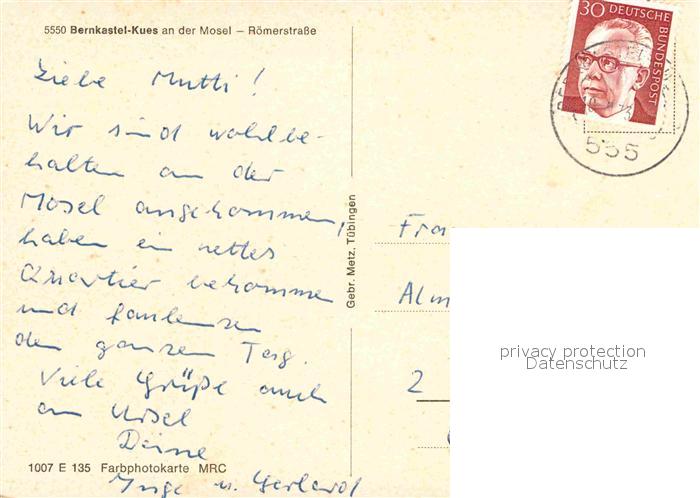 5550 Bernkastel-Kues an der Mosel – Römerstraße
Liebe Mutti!
Wir sind wohlbe-
halten an der
Mosel angekommen,
haben ein nettes
Quartier bekommen
und faulenzen
den ganzen Tag.
Viele Grüße auch
an Ursel
Deine
Inge u. Gerhard
1007 E 135 Farbphotokarte MRC
Gebr. Metz, Tübingen
30 DEUTSCHE BUNDESPOST
555
Fra
Alm
2
privacy protection
Datenschutz